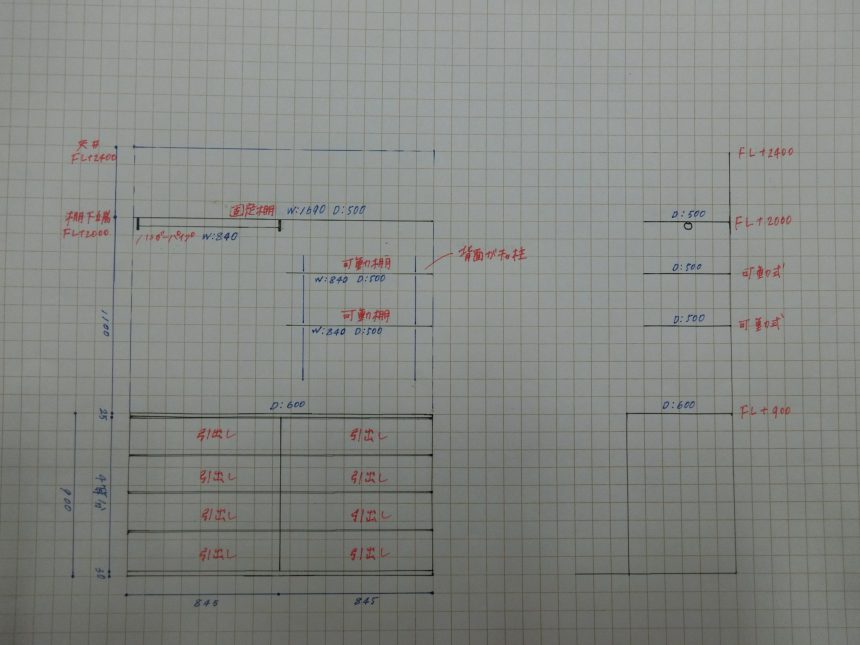 天井
FL+2400
棚下端
FL+2000
固定棚 W:1690 D:500
ハンガーパイプ W:840
可動棚
W:840 D:500
背面ガチャ柱
可動棚
W:840 D:500
1100
D:600
25
引出し 引出し
引出し 引出し
引出し 引出し
引出し 引出し
900
4等分
845 845
FL+2400
D:500
FL+2000
D:500
可動式
D:500
可動式
D:600
FL+900